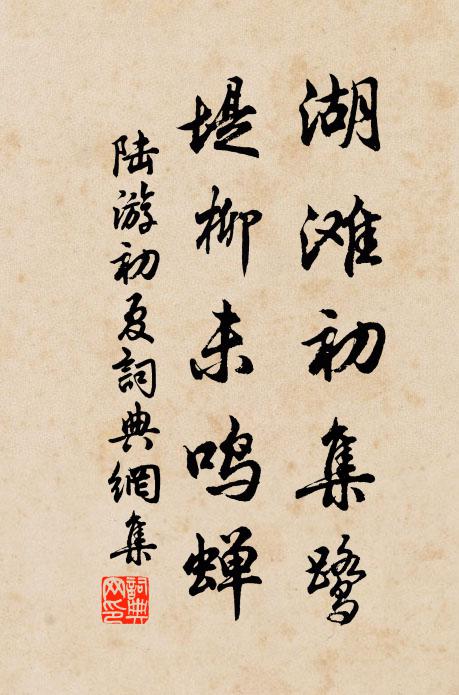 湖滩初集鹭
堤柳未鸣蝉
陆游初夏詞典網集
詞典网印